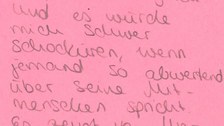 Und es würde
mich schwer
schockieren, wenn
jemand so abwertend
über seine Mit-
menschen spricht.